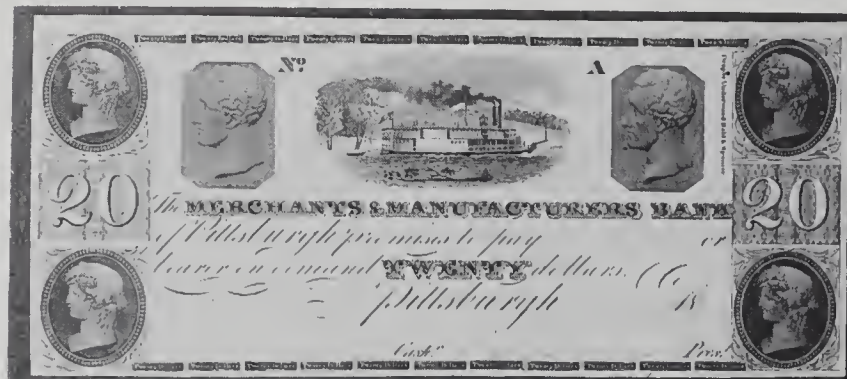 Twenty Dollars Twenty Dollars Twenty Dollars Twenty Dollars Twenty Dollars Twenty Dollars Twenty Dollars Twenty Dollars Twenty Dollars Twenty Dollars
No A
20 20
Draper Underwood Bald & Spencer
The MERCHANTS & MANUFACTURERS BANK
of Pittsburgh promises to pay or
bearer on demand TWENTY dollars
Pittsburgh 18
Cashr. Prest.
Twenty Dollars Twenty Dollars Twenty Dollars Twenty Dollars Twenty Dollars Twenty Dollars Twenty Dollars Twenty Dollars Twenty Dollars Twenty Dollars